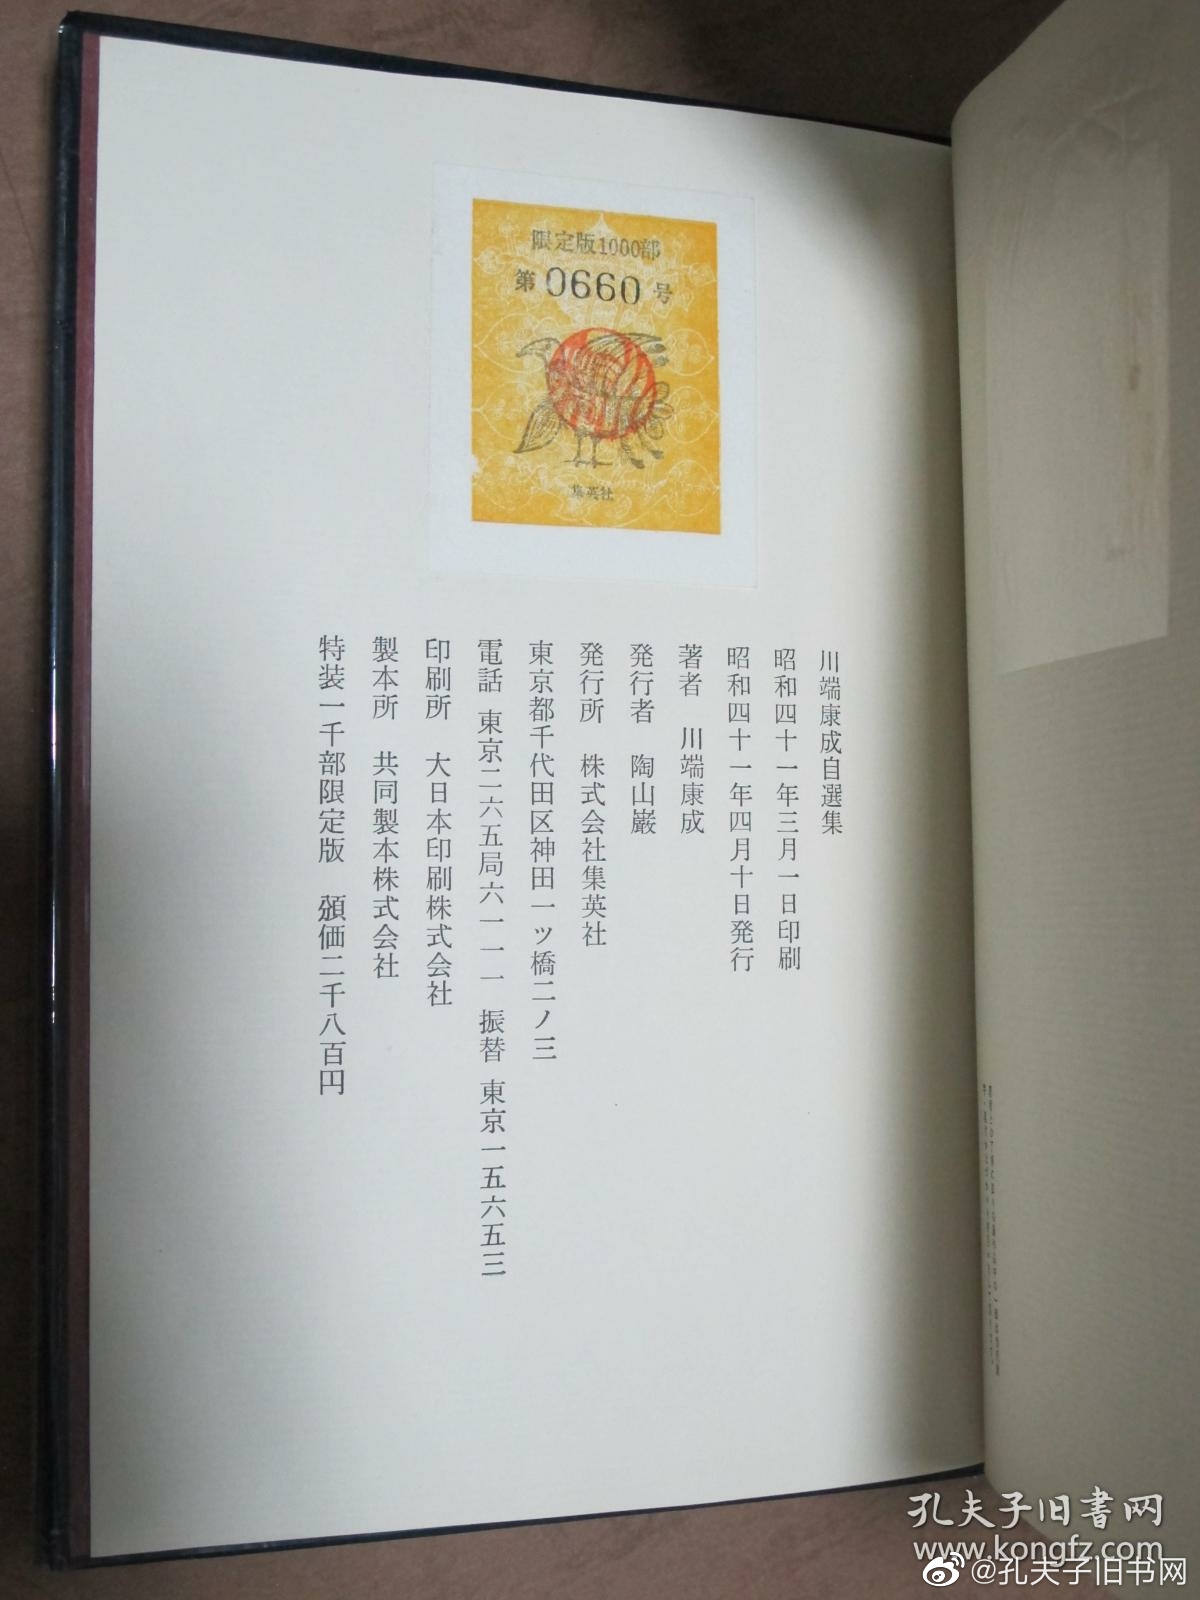 限定版1000部
第 0660 号
集英社
川端康成自選集
昭和四十一年三月一日印刷
昭和四十一年四月十日発行
著者　川端康成
発行者　陶山巌
発行所　株式会社集英社
東京都千代田区神田一ツ橋二ノ三
電話 東京二六五局六一一一 振替 東京一五六五三
印刷所　大日本印刷株式会社
製本所　共同製本株式会社
特装一千部限定版　頒価二千八百円
孔夫子旧书网
www.kongfz.com
@孔夫子旧书网